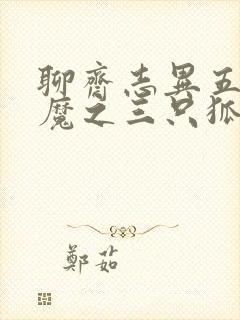 聊齋志異五
魔之三只狐
鄭茹